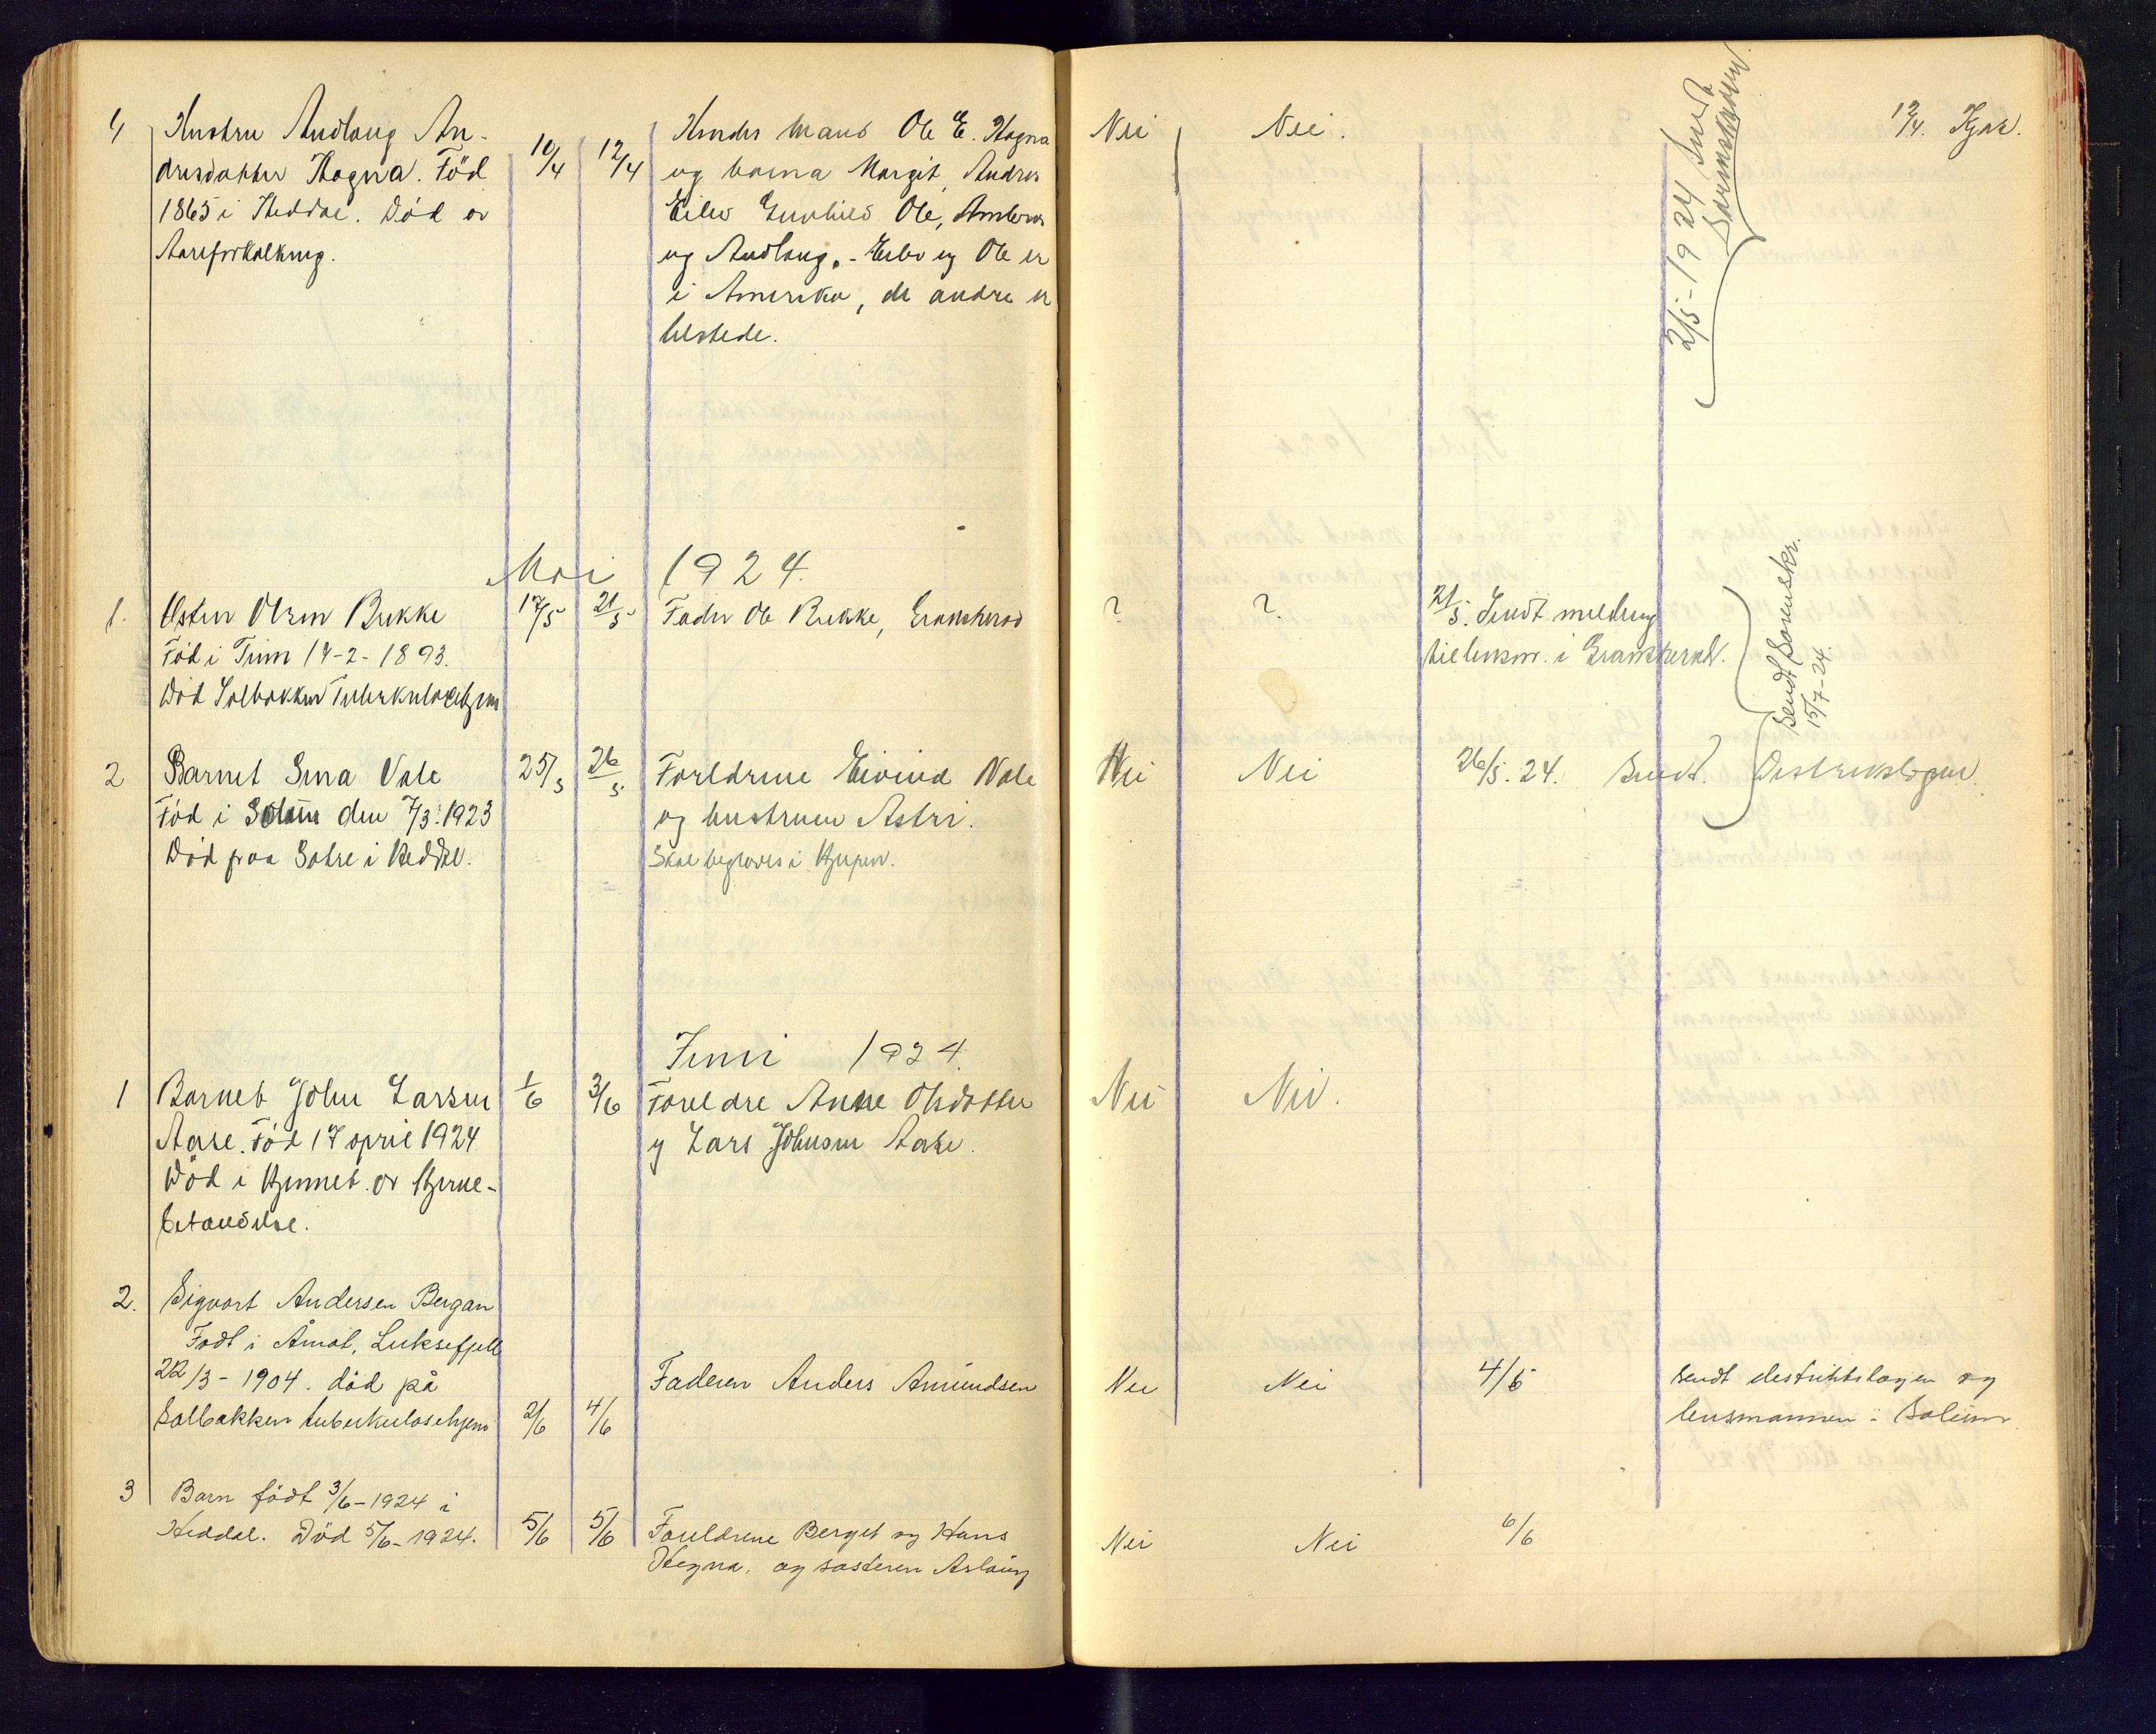 4 Hustru Audlaug An-
dresdatter Hogna. Född
1865 i Heddal. Död av
Aareforkalkning.
10/4 12/4
Hendes mand Ole E. Hogna
og barna Margit, Andres
Eilev Gunhild Ole, Ambros
og Audlaug. - Eilev og Ole er
i Amerika, de andre er
tilstede.
Nei Nei. 12/4. Hjar.
2/5-1924 Sendt
Sorenskriveren
Mai 1924.
1. Østen Olsen Bekke
Föd i Tinn 14-2-1893.
Död Solbakken Tuberkulosehjem
17/5 21/5 Fader Ole Bekke, Gransherad
? ? 21/5. Sendt melding
til lensm. i Gransherad.
Sendt Sorenskr.
15/7-24.
2 Barnet Sina Vale
Föd i Solum den 7/3. 1923
Död paa Sahre i Heddal.
25/5 26/5 Foreldrene Eivind Vale
og hustruen Astri.
Skal begraves i Gjerpen.
Nei Nei 26/5. 24. Sendt. Distriktslægen.
Juni 1924.
1 Barnet John Larsen
Aase. Föd 17 april 1924
Död i Hjemmet av Hjerne-
betændelse.
1/6 3/6 Foreldre Anne Olsdatter
og Lars Johnsen Aase.
Nei Nei.
2. Sigvart Andersen Bergan
Født i Åmot, Luksefjell
22/3-1904. død på
Solbakken tuberkulosehjem
2/6 4/6
Faderen Anders Amundsen
Nei Nei 4/6 Sendt destriktslægen og
lensmannen i Solum
3 Barn født 3/6-1924 i
Heddal. Död 5/6-1924.
5/6 5/6 Foreldrene Berget og Hans
Hegna. og søsteren Aslaug
Nei Nei 6/6